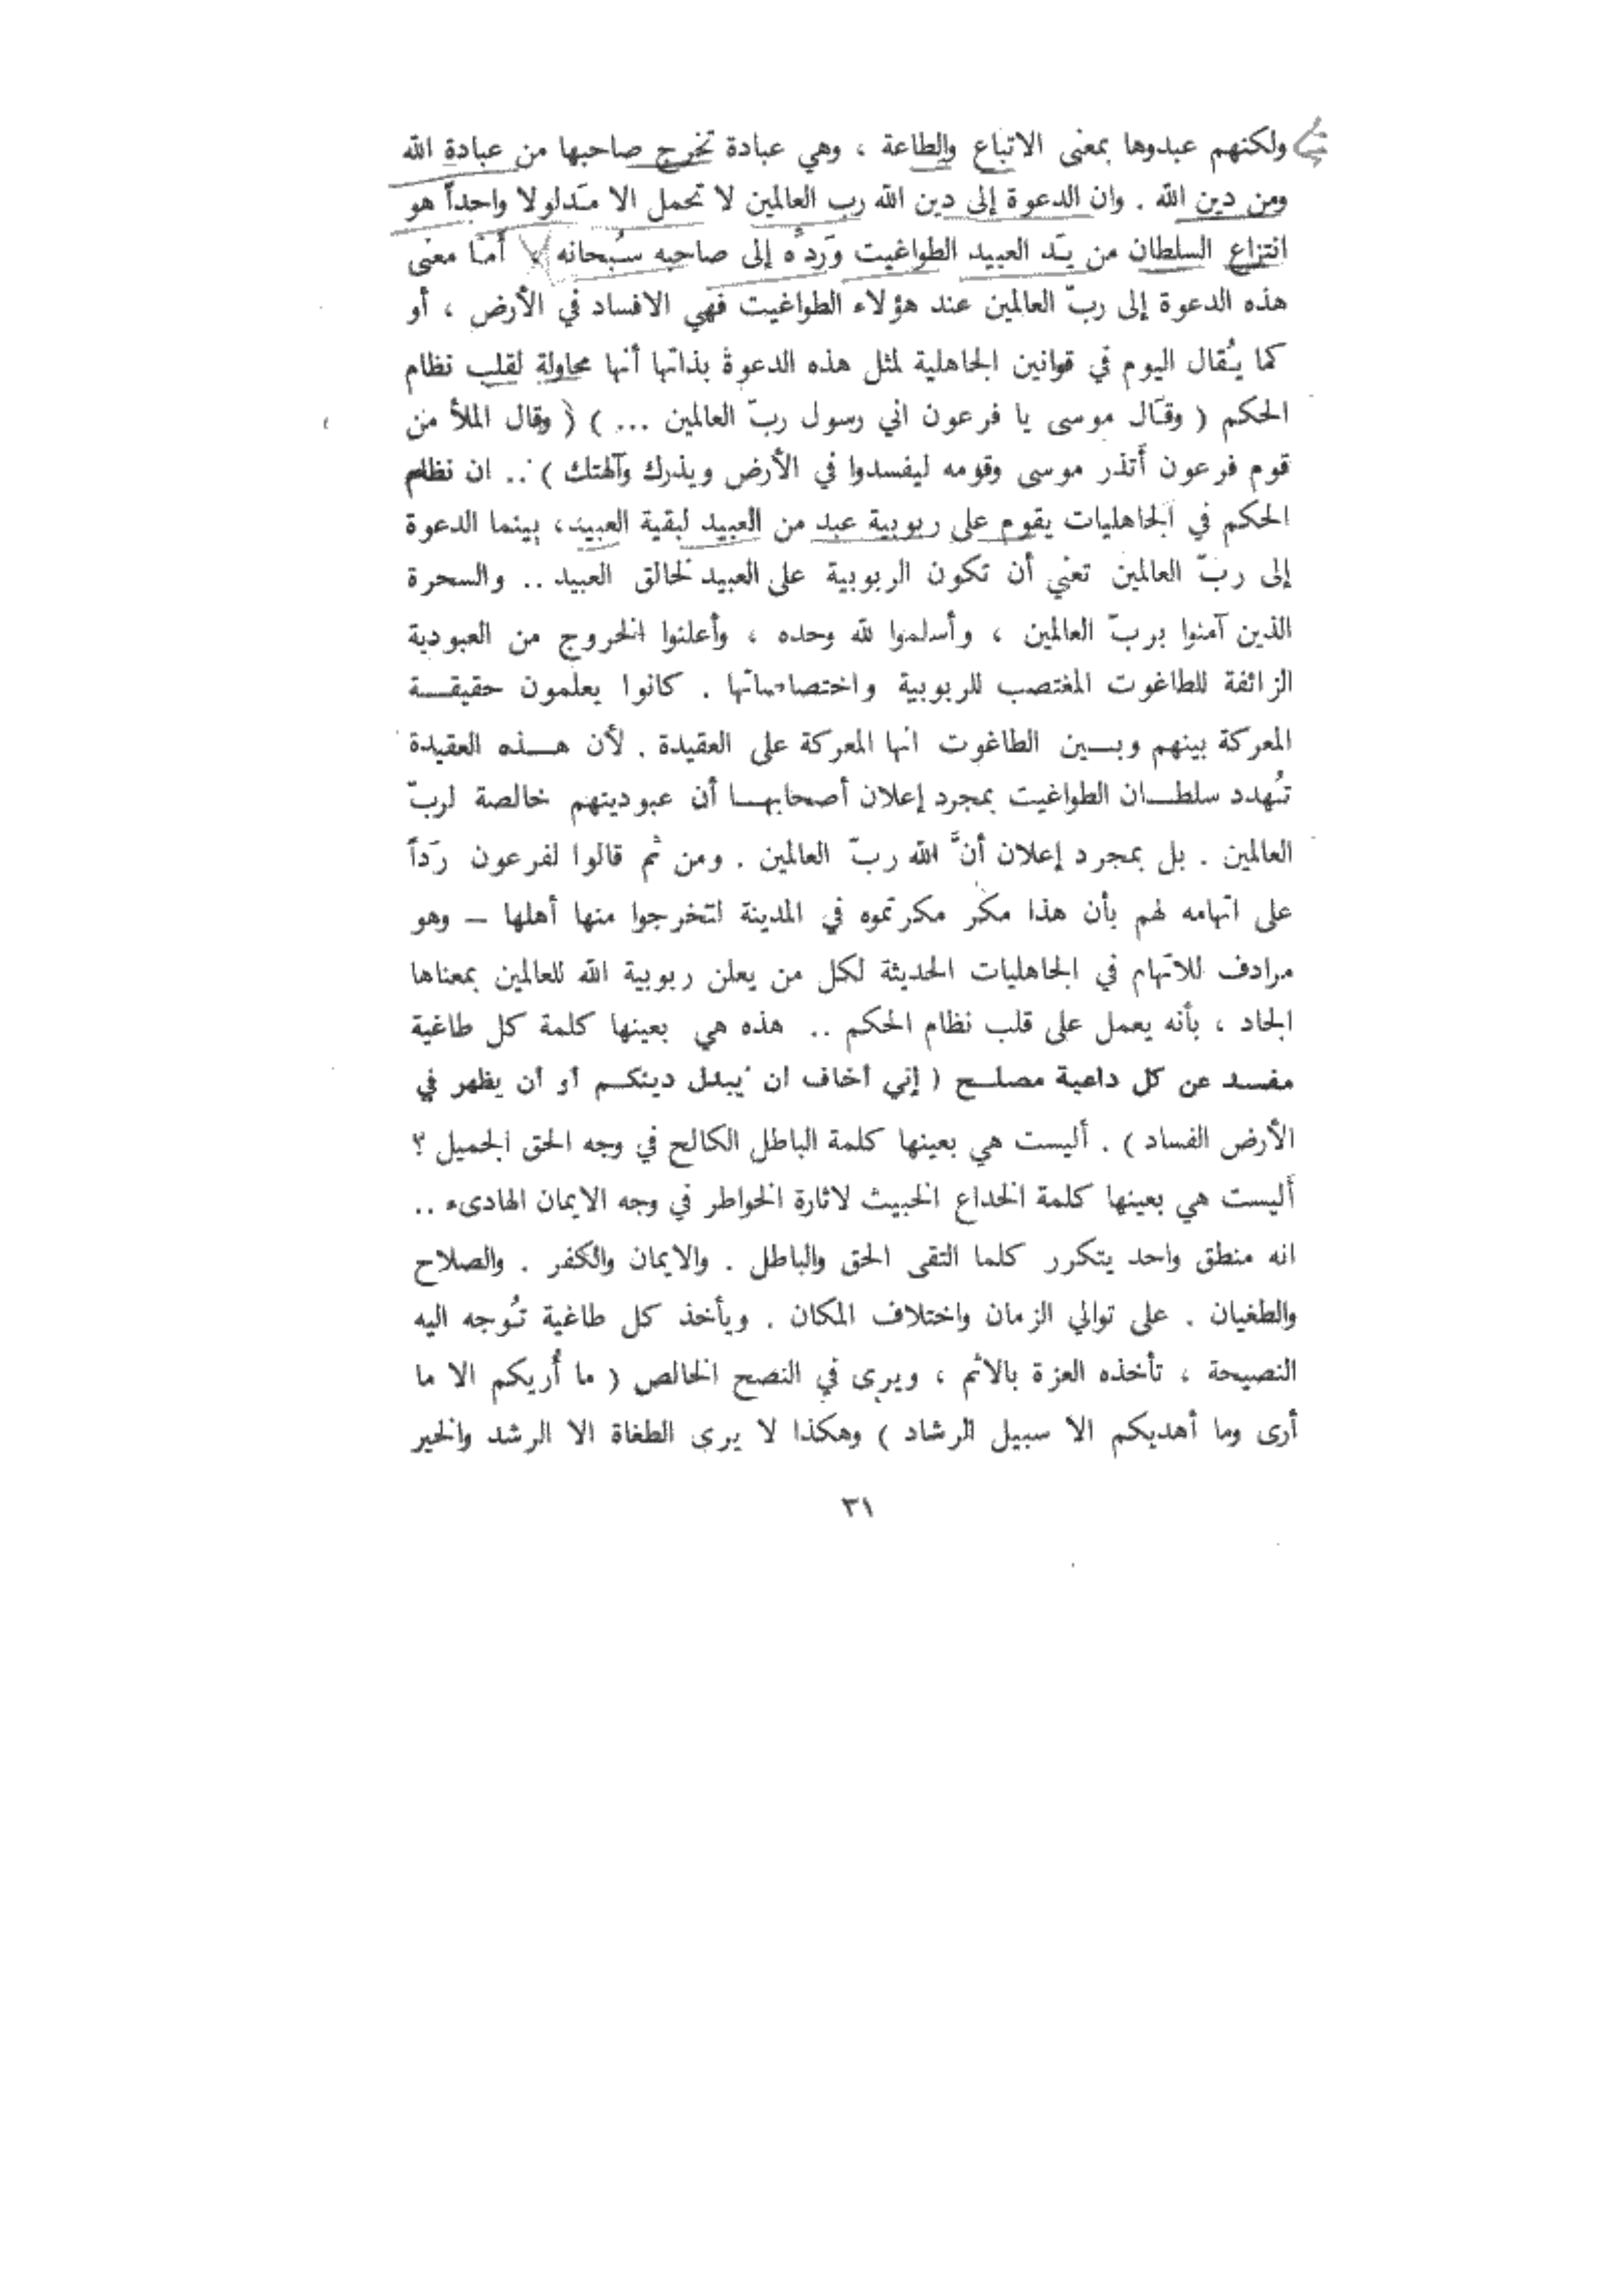 ولكنهم عبدوها بمعنى الاتباع والطاعة ، وهي عبادة تخرج صاحبها من عبادة الله
ومن دين الله . وان الدعوة إلى دين الله رب العالمين لا تحمل الا مَدلولا واحداً هو
انتزاع السلطان من يَد العبيد الطواغيت وَردهُ إلى صاحبه سُبحانه . أمَّا معنى
هذه الدعوة إلى ربّ العالمين عند هؤلاء الطواغيت فهي الافساد في الأرض ، أو
كما يُقال اليوم في قوانين الجاهلية لمثل هذه الدعوة بذاتها أنها محاولة لقلب نظام
الحكم ( وقَال موسى يا فرعون اني رسول ربّ العالمين ... ) ( وقال الملأ من
قوم فرعون أَتذر موسى وقومه ليفسدوا في الأرض ويذرك وآلهتك ) .. ان نظام
الحكم في الجاهليات يقوم على ربوبية عبد من العبيد لبقية العبيد، بينما الدعوة
إلى ربّ العالمين تعني أن تكون الربوبية على العبيد لخالق العبيد .. والسحرة
الذين آمنوا بربّ العالمين ، وأسلموا لله وحده ، وأعلنوا الخروج من العبودية
الزائفة للطاغوت المغتصب للربوبية واختصاصاتها . كانوا يعلمون حقيقـــة
المعركة بينهم وبـــين الطاغوت انها المعركة على العقيدة . لأن هـــذه العقيدة
تُهدد سلطـــان الطواغيت بمجرد إعلان أصحابهـــا أن عبوديتهم خالصة لربّ
العالمين . بل بمجرد إعلان أنَّ الله ربّ العالمين . ومن ثم قالوا لفرعون رَداً
على اتهامه لهم بأن هذا مكر مكرتموه في المدينة لتخرجوا منها أهلها – وهو
مرادف للاتهام في الجاهليات الحديثة لكل من يعلن ربوبية الله للعالمين بمعناها
الجاد ، بأنه يعمل على قلب نظام الحكم .. هذه هي بعينها كلمة كل طاغية
مفسد عن كل داعية مصلـــح ( إني أخاف ان يبدل دينكـــم أو أن يظهر في
الأرض الفساد ) . أليست هي بعينها كلمة الباطل الكالح في وجه الحق الجميل ؟
أليست هي بعينها كلمة الخداع الخبيث لاثارة الخواطر في وجه الايمان الهادىء ..
انه منطق واحد يتكرر كلما التقى الحق والباطل . والايمان والكفر . والصلاح
والطغيان . على توالي الزمان واختلاف المكان . ويأخذ كل طاغية تُوجه اليه
النصيحة ، تأخذه العزة بالاثم ، ويرى في النصح الخالص ( ما أُريكم الا ما
أرى وما أهديكم الا سبيل الرشاد ) وهكذا لا يرى الطغاة الا الرشد والخير
٣١